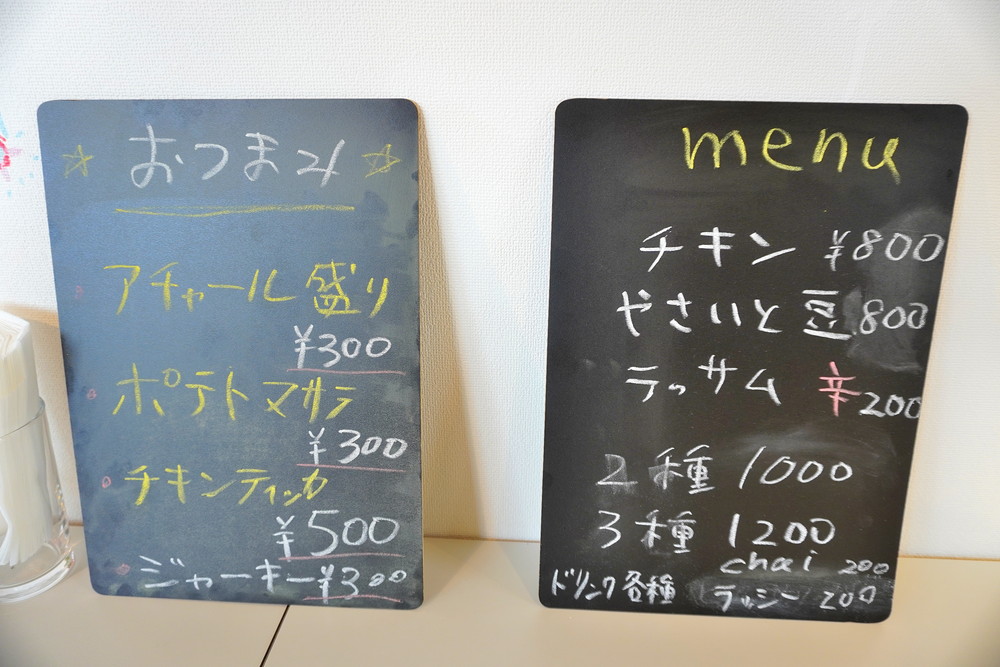 ☆ おつまみ ☆
アチャール 盛り
¥300
ポテトマサラ
¥300
チキンティッカ
¥500
ジャーキー ¥300
menu
チキン ¥800
やさいと豆 800
ラッサム 辛 200
2種 1000
3種 1200
chai 200
ドリンク各種 ラッシー 200